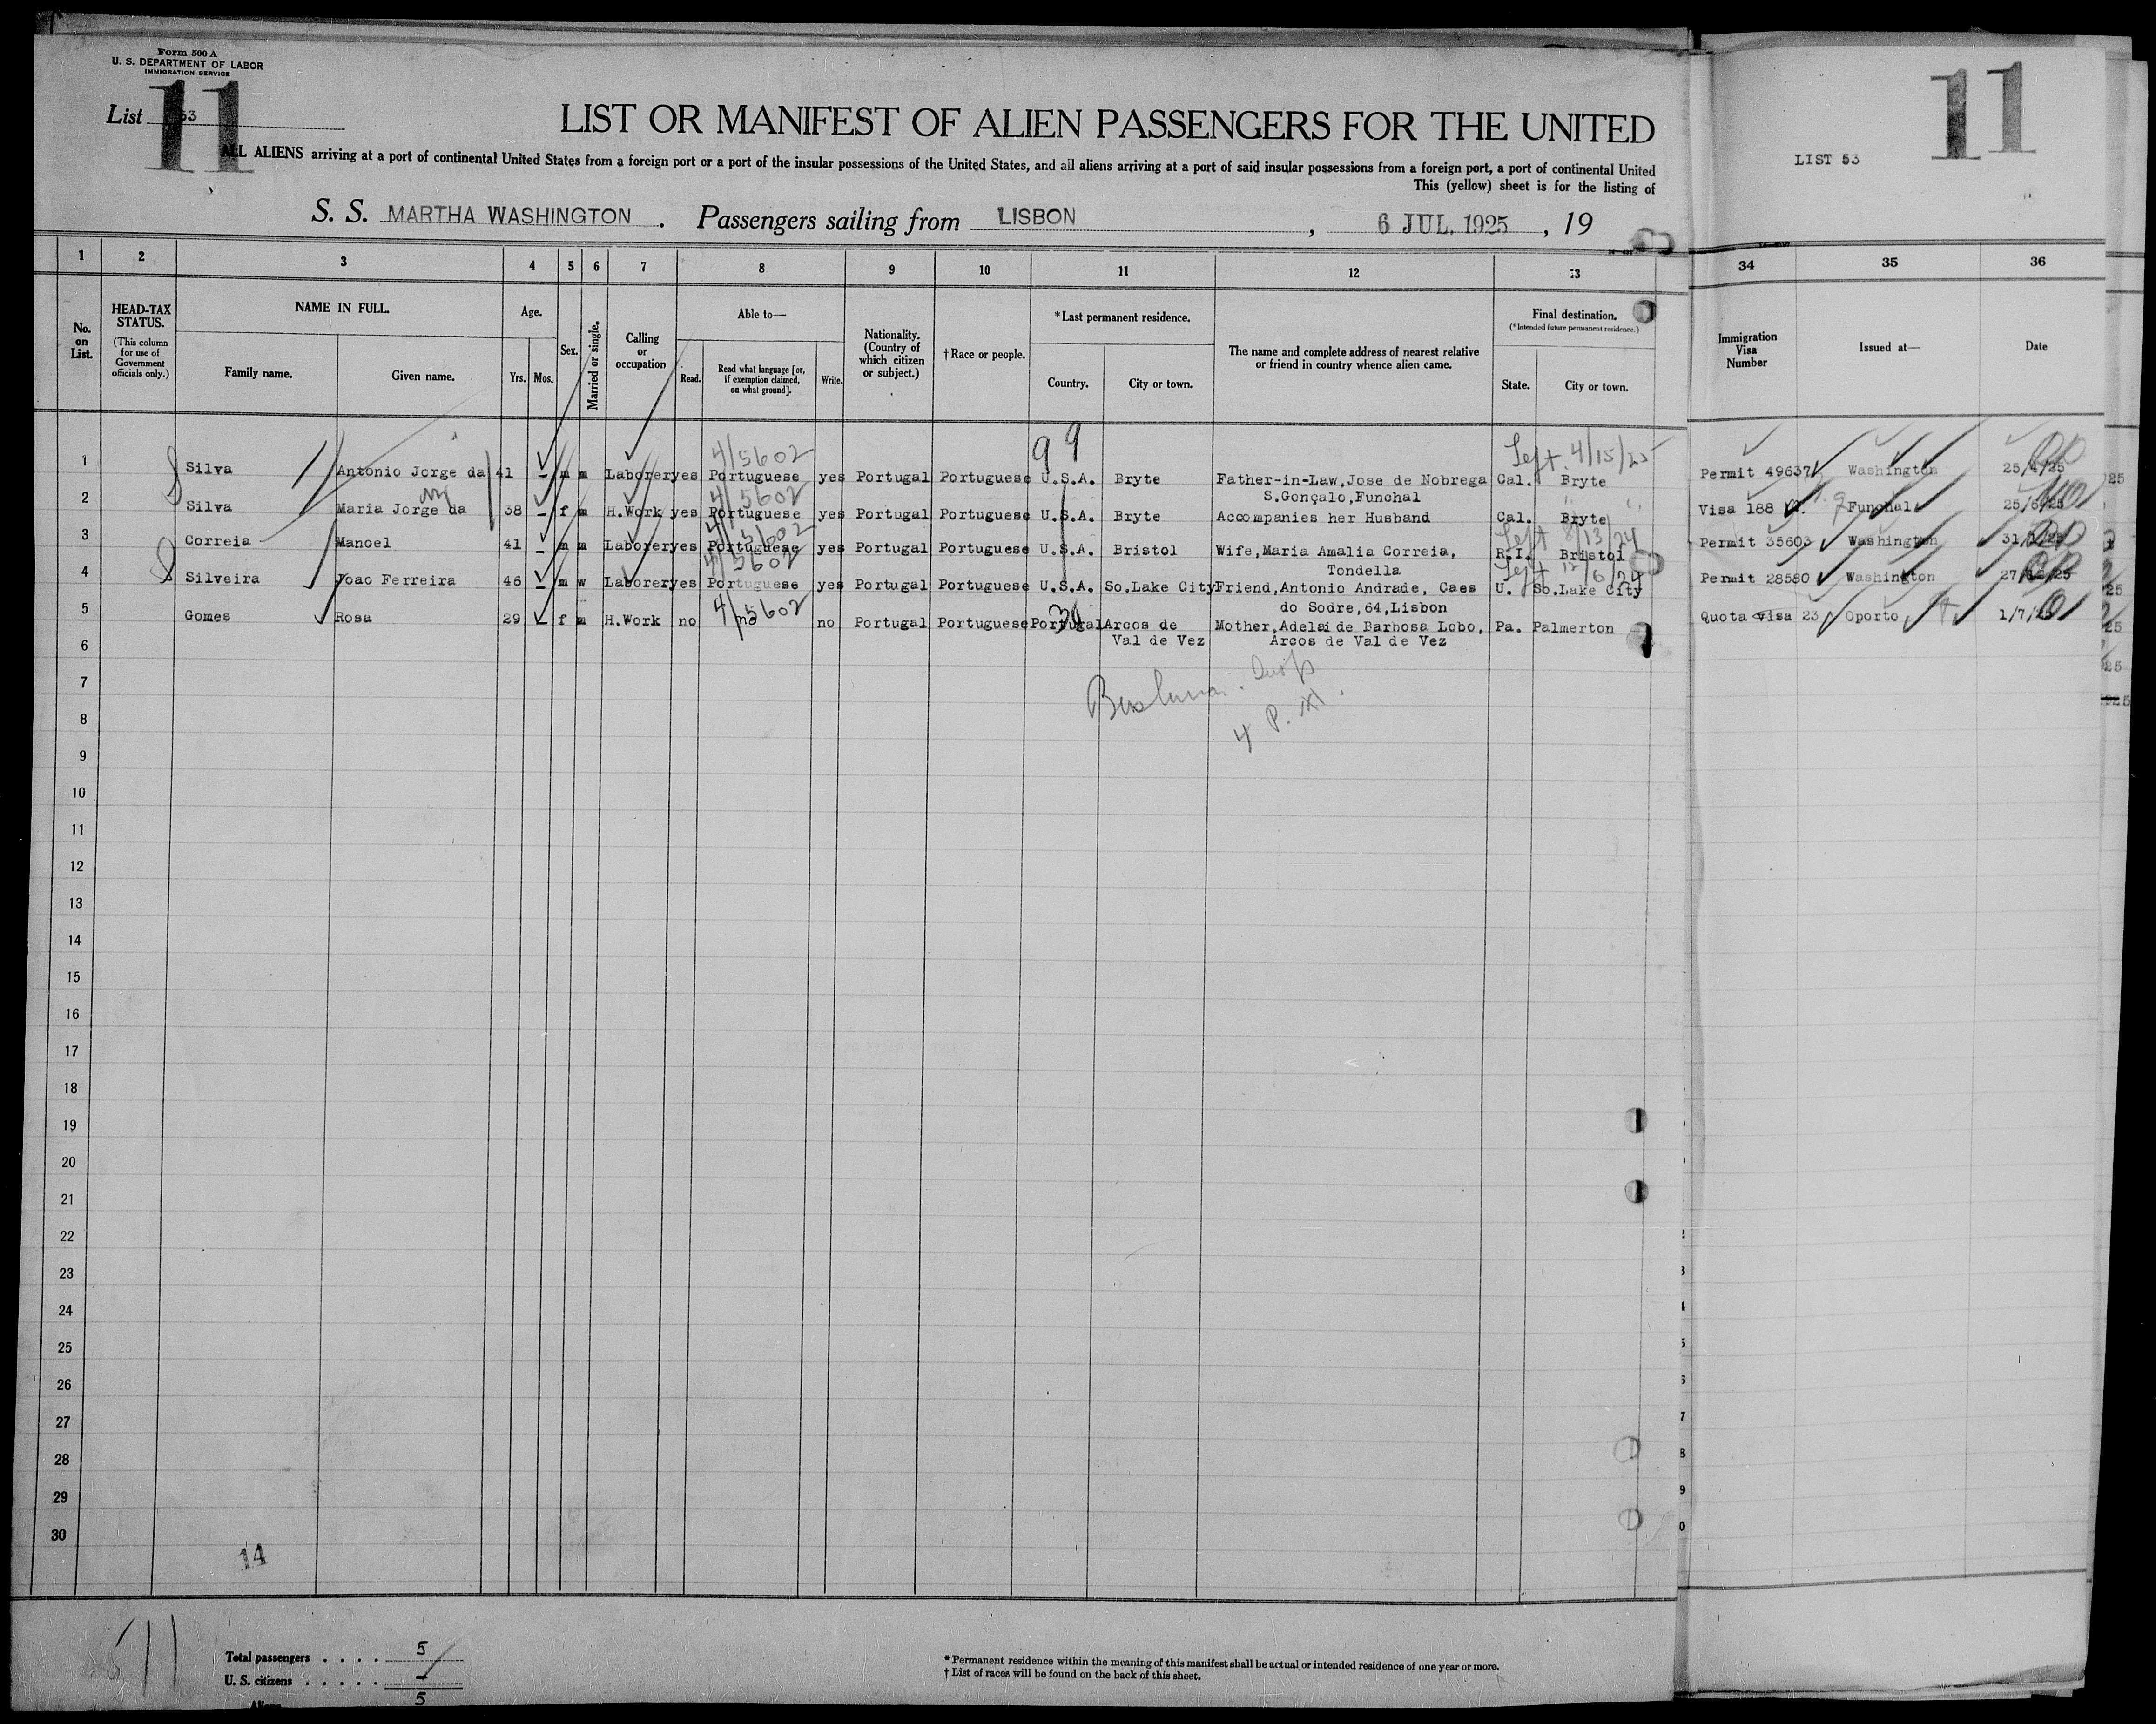 Form 500 A
U. S. DEPARTMENT OF LABOR
IMMIGRATION SERVICE
11
List 53
LIST OR MANIFEST OF ALIEN PASSENGERS FOR THE UNITED
ALL ALIENS arriving at a port of continental United States from a foreign port or a port of the insular possessions of the United States, and all aliens arriving at a port of said insular possessions from a foreign port, a port of continental United
This (yellow) sheet is for the listing of
S. S. MARTHA WASHINGTON. Passengers sailing from LISBON, 6 JUL. 1925, 19
LIST 53
11
1 2 3 4 5 6 7 8 9 10 11 12 13 34 35 36
No. on List.
HEAD-TAX STATUS.
(This column for use of Government officials only.)
NAME IN FULL.
Family name. Given name.
Age.
Yrs. Mos.
Sex.
Married or single.
Calling or occupation
Able to—
Read. Read what language [or, if exemption claimed, on what ground]. Write.
Nationality. (Country of which citizen or subject.)
†Race or people.
*Last permanent residence.
Country. City or town.
The name and complete address of nearest relative or friend in country whence alien came.
Final destination.
(*Intended future permanent residence.)
State. City or town.
Immigration Visa Number
Issued at—
Date
4/5602 99 Left 4/15/25
1 Silva Antonio Jorge da 41 – m m Laborer yes Portuguese yes Portugal Portuguese U.S.A. Bryte Father-in-Law,Jose de Nobrega Cal. Bryte Permit 49637 Washington 25/4/25
S.Gonçalo,Funchal
4/5602
2 Silva Maria Jorge da 38 – f m H.Work yes Portuguese yes Portugal Portuguese U.S.A. Bryte Accompanies her Husband Cal. Bryte Visa 188 Funchal 25/6/25
4/5602 Left 8/13/24
3 Correia Manoel 41 – m m Laborer yes Portuguese yes Portugal Portuguese U.S.A. Bristol Wife,Maria Amalia Correia, R.I. Bristol Permit 35603 Washington
Tondella
4/5602 Left 12/6/24
4 Silveira Joao Ferreira 46 – m w Laborer yes Portuguese yes Portugal Portuguese U.S.A. So.Lake City Friend,Antonio Andrade, Caes U. So.Lake City Permit 28580 Washington
do Sodre,64,Lisbon
4/5602
5 Gomes Rosa 29 – f m H.Work no no no Portugal Portuguese Portugal Arcos de Mother,Adelai de Barbosa Lobo, Pa. Palmerton Quota visa 23 Oporto 1/7/25
Val de Vez Arcos de Val de Vez
6
7
8
9
10
11
12
13
14
15
16
17
18
19
20
21
22
23
24
25
26
27
28
29
30
14
Total passengers . . . . 5
U. S. citizens . . . . . –
Aliens 5
* Permanent residence within the meaning of this manifest shall be actual or intended residence of one year or more.
† List of races will be found on the back of this sheet.